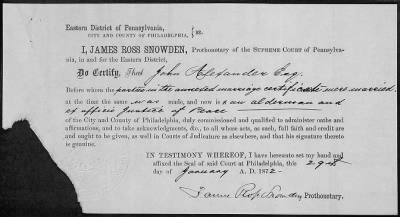 Eastern District of Pennsylvania,
CITY AND COUNTY OF PHILADELPHIA, } ss.
I, JAMES ROSS SNOWDEN, Prothonotary of the SUPREME COURT of Pennsylva-
nia, in and for the Eastern District,
Do Certify, That John Alexander Esq.
Before whom the parties in the annexed marriage certificate were married
at the time the same was made, and now is an alderman and
ex officio Justice of Peace
of the City and County of Philadelphia, duly commissioned and qualified to administer oaths and
affirmations, and to take acknowledgments, &c., to all whose acts, as such, full faith and credit
are and ought to be given, as well in Courts of Judicature as elsewhere, and that his signature thereto
is genuine.
IN TESTIMONY WHEREOF, I have hereunto set my hand and
affixed the Seal of said Court at Philadelphia, this 29th
day of January A. D. 1872
James Ross Snowden Prothonotary.